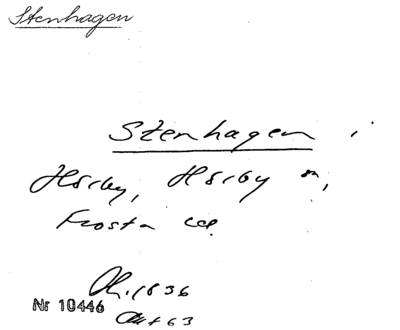 Stenhagen
Stenhagen i
Hörby, Hörby sn,
Frosta hd.
1836
Nr 10446